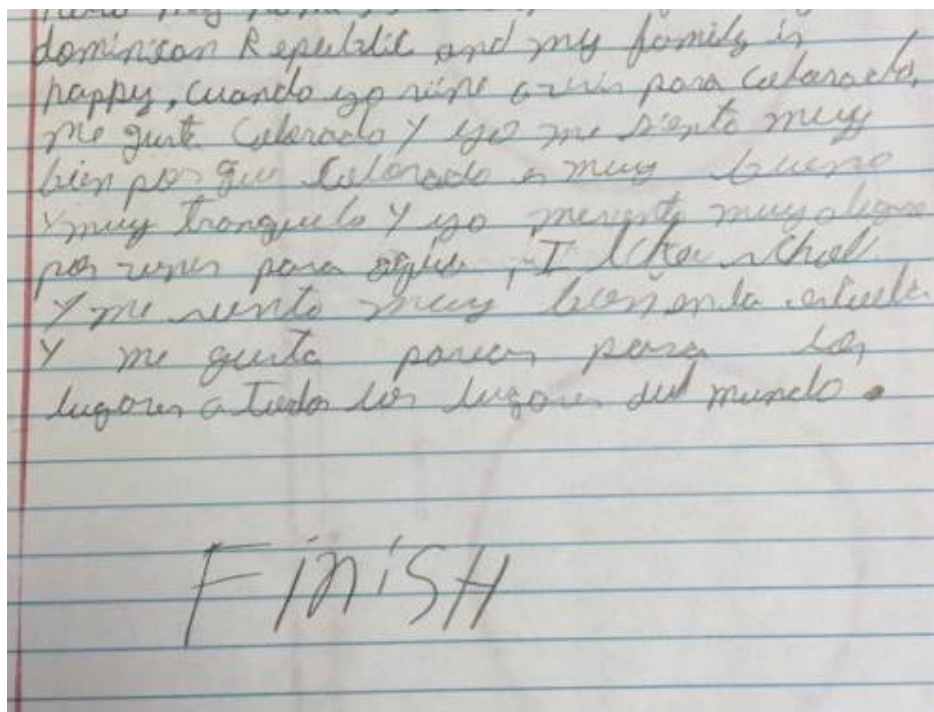 my
dominican Republic and my family is
happy, cuando yo vine a vivir para colorado,
me gusta Colorado Y yo me siento muy
bien por que Colorado es muy bueno
Y muy tranquilo Y yo me siento muy alegre
por venir para aquí, I like school
Y me siento muy bien en la escuela
Y me gusta para los
lugares a todos los lugares del mundo.
FINISH